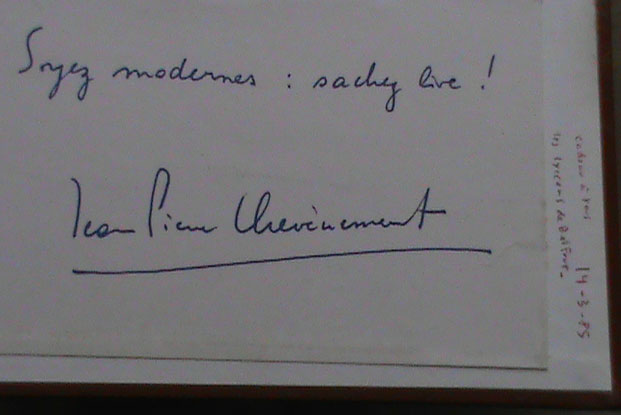 Soyez modernes : sachez lire !
Jean Pierre Chevènement
cadeau à tous
les lycéens de
14-3-85